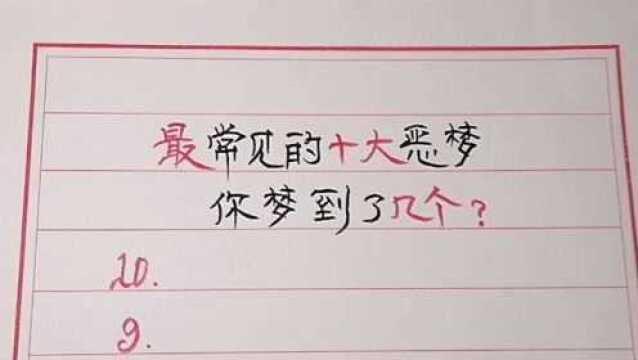 最常见的十大恶梦
你梦到了几个?
10.
9.